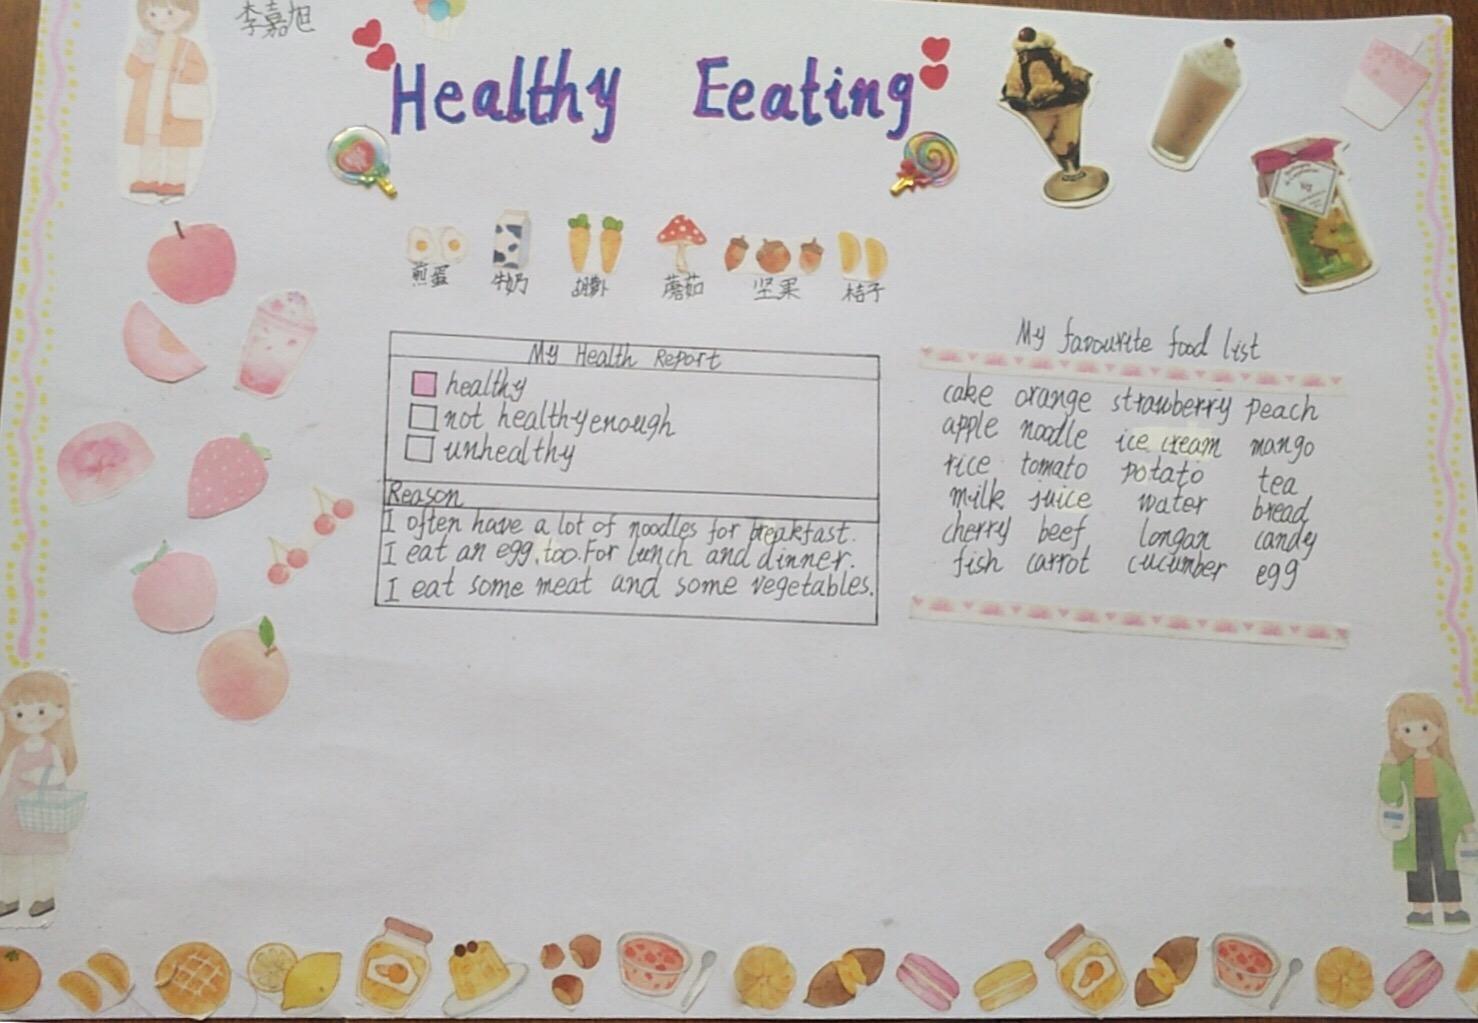 李嘉旭
Healthy Eeating
煎蛋 牛奶 胡萝卜 蘑菇 坚果 桔子
My Health Report
healthy
not healthy enough
unhealthy
Reason
I often have a lot of noodles for breakfast.
I eat an egg,too.For lunch and dinner.
I eat some meat and some vegetables.
My favourite food list
cake orange strawberry peach
apple noodle ice cream mango
rice tomato potato tea
milk juice water bread
cherry beef longan candy
fish carrot cucumber egg